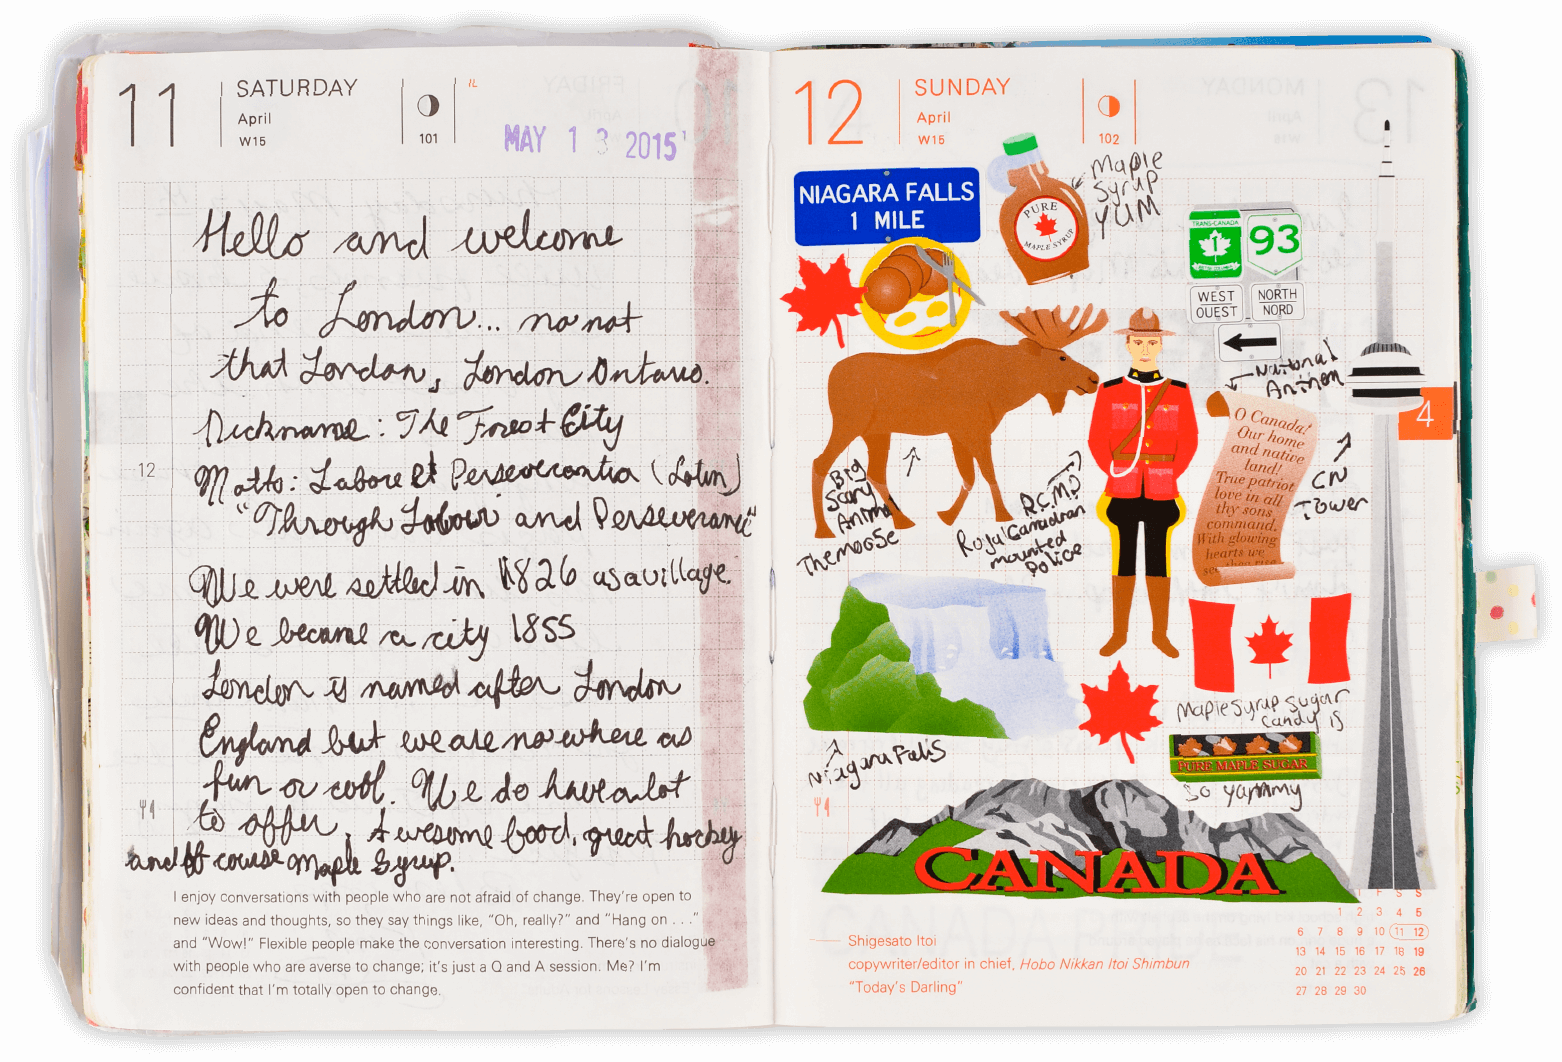 11
SATURDAY
April
W15
101
IL
MAY 13 2015
Hello and welcome
to London... no not
that London, London Ontario.
Nickname: The Forest City
12
Motto: Labore Et Perseverantia (Latin)
"Through Labour and Perseverance"
We were settled in 1826 as a village.
We became a city 1855
London is named after London
England but we are nowhere as
fun or cool. We do have a lot
to offer, Awesome food, great hockey
and of course Maple Syrup.
I enjoy conversations with people who are not afraid of change. They're open to
new ideas and thoughts, so they say things like, "Oh, really?" and "Hang on . . ."
and "Wow!" Flexible people make the conversation interesting. There's no dialogue
with people who are averse to change; it's just a Q and A session. Me? I'm
confident that I'm totally open to change.
12
SUNDAY
April
W15
102
NIAGARA FALLS
1 MILE
PURE
MAPLE SYRUP
Maple
Syrup
YUM
TRANS-CANADA
1
BRITISH COLUMBIA
93
WEST
OUEST
NORTH
NORD
National
Anthem
4
O Canada!
Our home
and native
land!
True patriot
love in all
thy sons
command.
With glowing
hearts we
see thee rise
CN
Tower
Big
Scary
Animal
The moose
R.C.M.P
Royal Canadian
mounted
Police
Niagara Falls
Maple Syrup Sugar
candy is
PURE MAPLE SUGAR
So Yammy
CANADA
Shigesato Itoi
copywriter/editor in chief, Hobo Nikkan Itoi Shimbun
"Today's Darling"
F S S
1 2 3 4 5
6 7 8 9 10 11 12
13 14 15 16 17 18 19
20 21 22 23 24 25 26
27 28 29 30